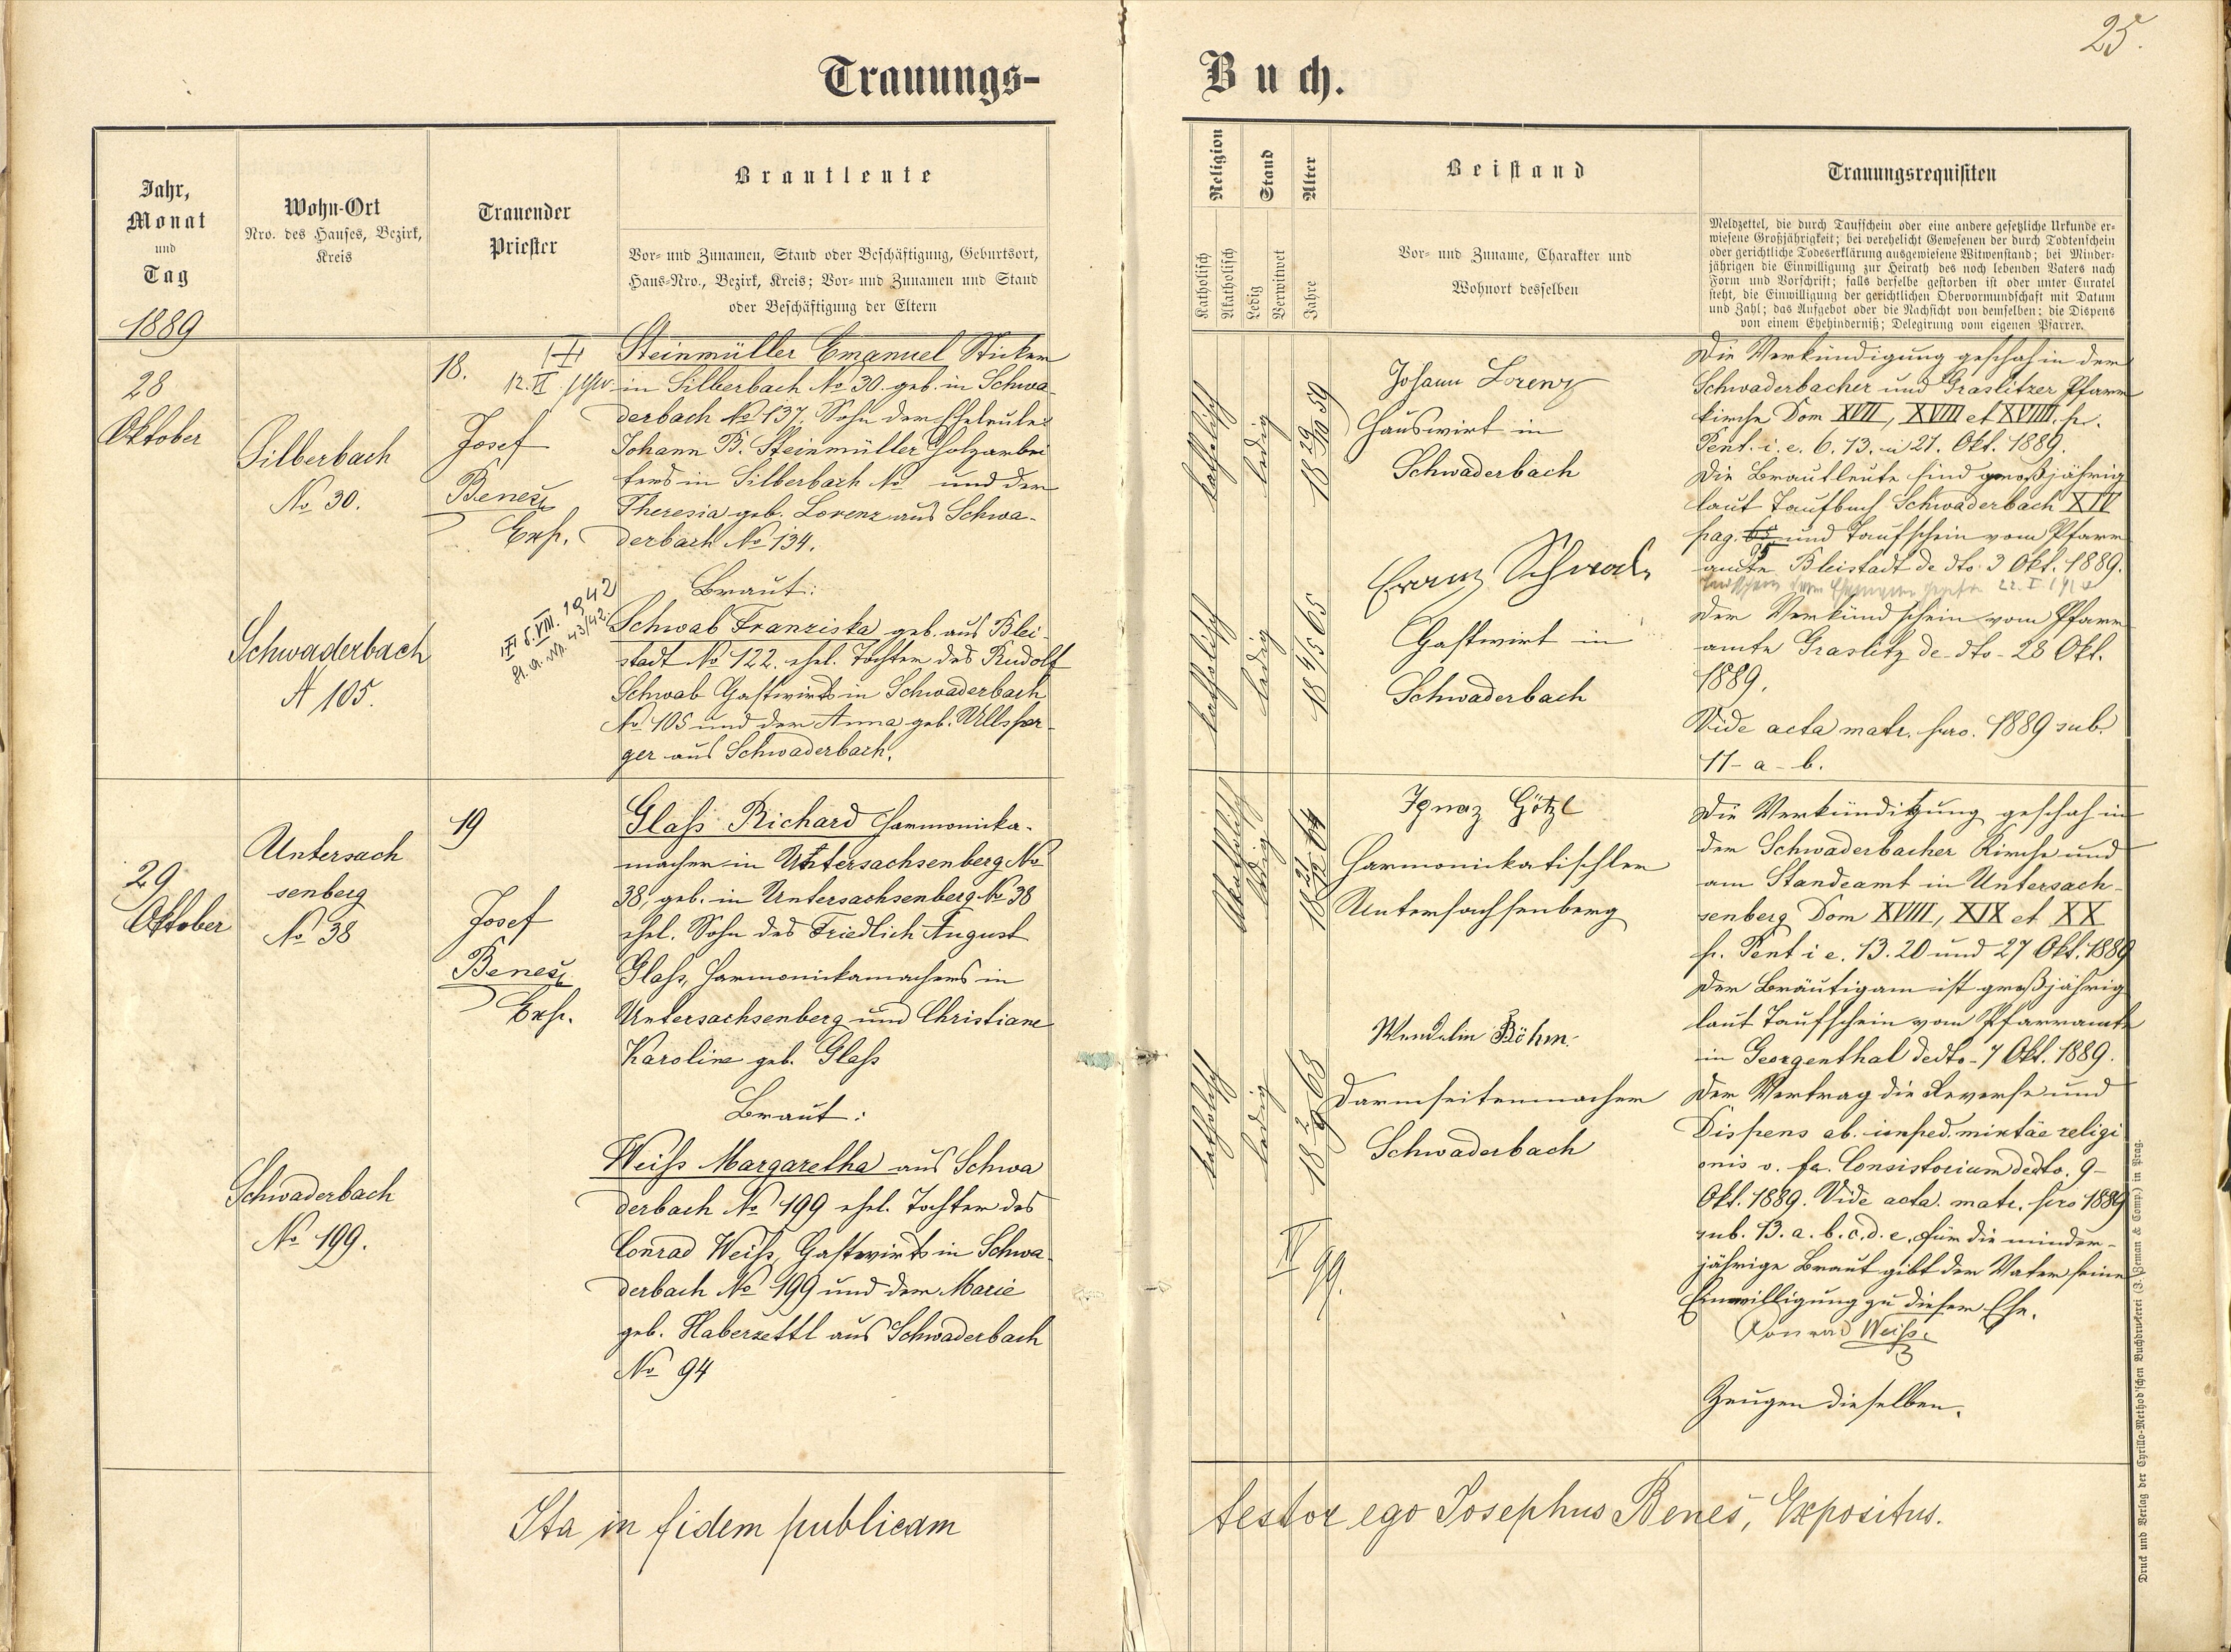 25.
Trauungs-
Buch.
Jahr,
Monat
und
Tag
1889
Wohn-Ort
Nro. des Hauses, Bezirk,
Kreis
Trauender
Priester
Brautleute
Vor- und Zunamen, Stand oder Beschäftigung, Geburtsort,
Haus-Nro., Bezirk, Kreis; Vor- und Zunamen und Stand
oder Beschäftigung der Eltern
Religion
Katholisch
Akatholisch
Stand
Ledig
Verwitwet
Alter
Jahre
Beistand
Vor- und Zuname, Charakter und
Wohnort desselben
Trauungsrequisiten
Meldzettel, die durch Taufschein oder eine andere gesetzliche Urkunde er-
wiesene Großjährigkeit; bei verehelicht Gewesenen der durch Todtenschein
oder gerichtliche Todeserklärung ausgewiesene Witwenstand; bei Minder-
jährigen die Einwilligung zur Heirath des noch lebenden Vaters nach
Form und Vorschrift; falls derselbe gestorben ist oder unter Curatel
steht, die Einwilligung der gerichtlichen Obervormundschaft mit Datum
und Zahl; das Aufgebot oder die Nachsicht von demselben; die Dispens
von einem Ehehinderniß; Delegirung vom eigenen Pfarrer.
28
Oktober
Silberbach
No 30.
Schwaderbach
N 105.
18.
12. II
Josef
Beneš
Exp.
Steinmüller Emanuel Sticker
in Silberbach No 30. geb. in Schwa-
derbach No 137. Sohn der Eheleute
Johann B. Steinmüller Holzarbei
ters in Silberbach No und der
Theresia geb. Lorenz aus Schwa-
derbach No 134.
Braut:
6. VIII. 1942
43/42.
Schwab Franziska geb. aus Blei-
stadt No 122. ehel. Tochter des Rudolf
Schwab Gastwirts in Schwaderbach
No 105 und der Anna geb. Ullsper-
ger aus Schwaderbach.
katholisch
ledig
18 29/10 59
Johann Lorenz
Hauswirt in
Schwaderbach
katholisch
ledig
18 4/5 65
Franz Schwab
Gastwirt in
Schwaderbach
Die Verkündigung geschah in der
Schwaderbacher und Graslitzer Pfarr
kirche Dom XVII, XVIII et XVIIII. p.
Pent. i. e. 6. 13. u 21. Okt. 1889.
Die Brautleute sind großjährig
laut Taufbuch Schwaderbach XIV
pag. und Taufschein vom Pfarr
amte Bleistadt de dto. 3 Okt. 1889.
Der Verkündschein vom Pfarr
amte Graslitz de dto. 28 Okt.
1889.
Vide acta matr. pro. 1889 sub.
11- a- b.
29
Oktober
Untersach
senberg
No 38
Schwaderbach
No 199.
19
Josef
Beneš
Exp.
Glaß Richard Harmonika-
macher in Untersachsenberg No
38, geb. in Untersachsenberg No 38
ehel. Sohn des Friedlich August
Glaß, Harmonikamachers in
Untersachsenberg und Christiane
Karoline geb. Glaß
Braut:
Weiß Margaretha aus Schwa
derbach No 199 ehel. Tochter des
Conrad Weiß, Gastwirts in Schwa-
derbach No 199 und der Marie
geb. Haberzettl aus Schwaderbach
No 94
Akatholisch
ledig
Ignaz Götzl
Harmonikatischler
Untersachsenberg
katholisch
ledig
Wendelin Böhm.
Darmseitenmacher
Schwaderbach
IV
99.
Die Verkündigung geschah in
der Schwaderbacher Kirche und
am Standeamt in Untersach-
senberg Dom XVIII, XIX et XX
p. Pent i e. 13. 20 und 27 Okt. 1889
Der Bräutigam ist großjährig
laut Taufschein vom Pfarramte
in Georgenthal de dto- 7 Okt. 1889.
Der Vertrag die Reverse und
Dispens ab. imped. mixtäe religi
onis v. fe. Consistorium de dto. 9-
Okt. 1889. Vide acta. matr. pro 1889
sub. 13. a. b. c. d. e. Für die minder-
jährige Braut gibt der Vater seine
Einwilligung zu dieser Ehe.
Konrad Weiß.
Zeugen dieselben.
Ita in fidem publicam
testor ego Josephus Beneš, Expositus.
Druck und Verlag der Cyrillo-Method'schen Buchdruckerei (J. Zeman & Comp.) in Prag.